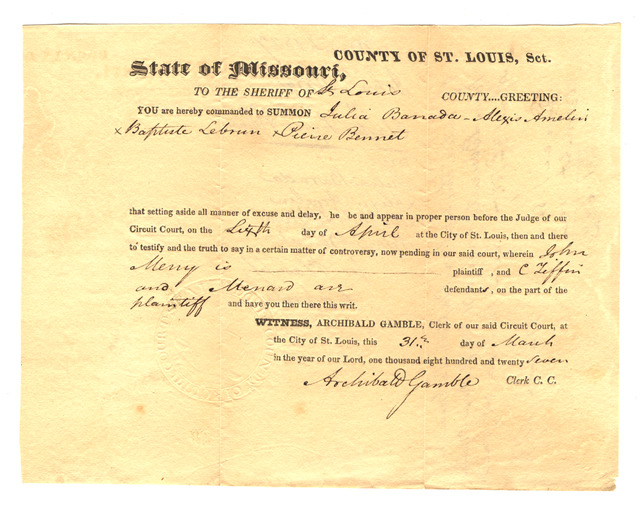 COUNTY OF ST. LOUIS, Sct.
State of Missouri,
TO THE SHERIFF OF St Louis COUNTY....GREETING:
YOU are hereby commanded to SUMMON Julia Banada - Alexis Amelin
x Baptiste Lebrun x Pierre Bennet
that setting aside all manner of excuse and delay, he be and appear in proper person before the Judge of our
Circuit Court, on the Sixth day of April at the City of St. Louis, then and there
to testify and the truth to say in a certain matter of controversy, now pending in our said court, wherein John
Merry is plaintiff, and C Tiffin
and Menard are defendants, on the part of the
plaintiff and have you then there this writ.
WITNESS, ARCHIBALD GAMBLE, Clerk of our said Circuit Court, at
the City of St. Louis, this 31st day of March
in the year of our Lord, one thousand eight hundred and twenty seven
Archibald Gamble Clerk C. C.